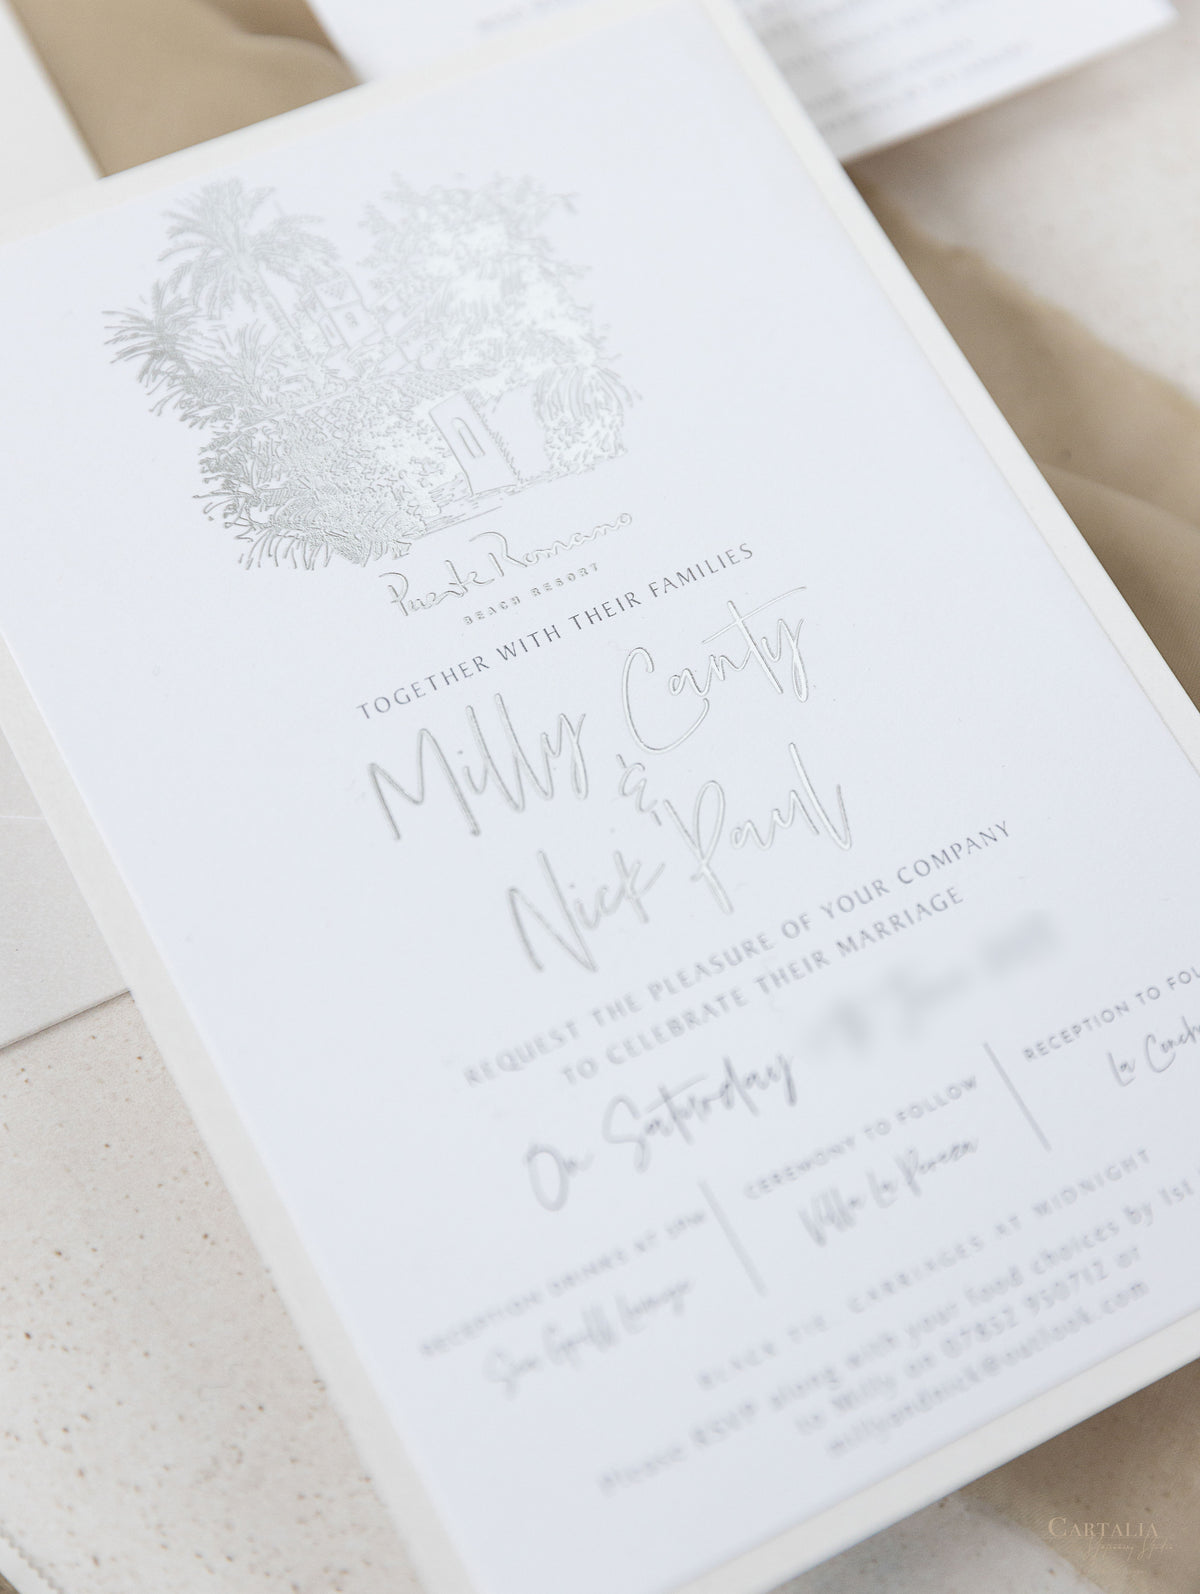 Puente Romano
BEACH RESORT
TOGETHER WITH THEIR FAMILIES
Milly Canty
&
Nick Paul
REQUEST THE PLEASURE OF YOUR COMPANY
TO CELEBRATE THEIR MARRIAGE
On Saturday
RECEPTION DRINKS AT
Sea Grill Lounge
CEREMONY TO FOLLOW
Villa La Pereza
RECEPTION TO FOL
La Conch
BLACK TIE. CARRIAGES AT MIDNIGHT
Please RSVP along with your food choices by 1st
to Milly on 07852 950712 or
millyandnick@outlook.com
CARTALIA